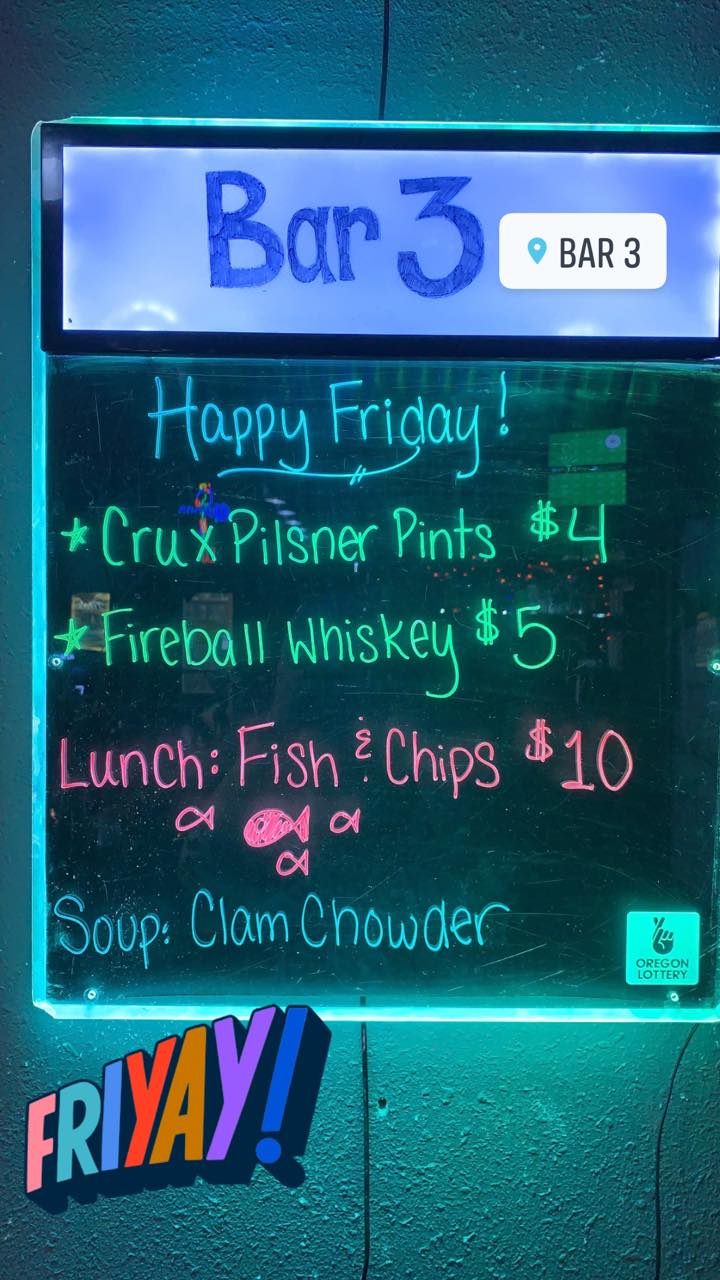 Bar 3
BAR 3
Happy Friday!
★ Crux Pilsner Pints $4
★ Fireball Whiskey $5
Lunch: Fish & Chips $10
Soup: Clam Chowder
OREGON
LOTTERY
FRIYAY!